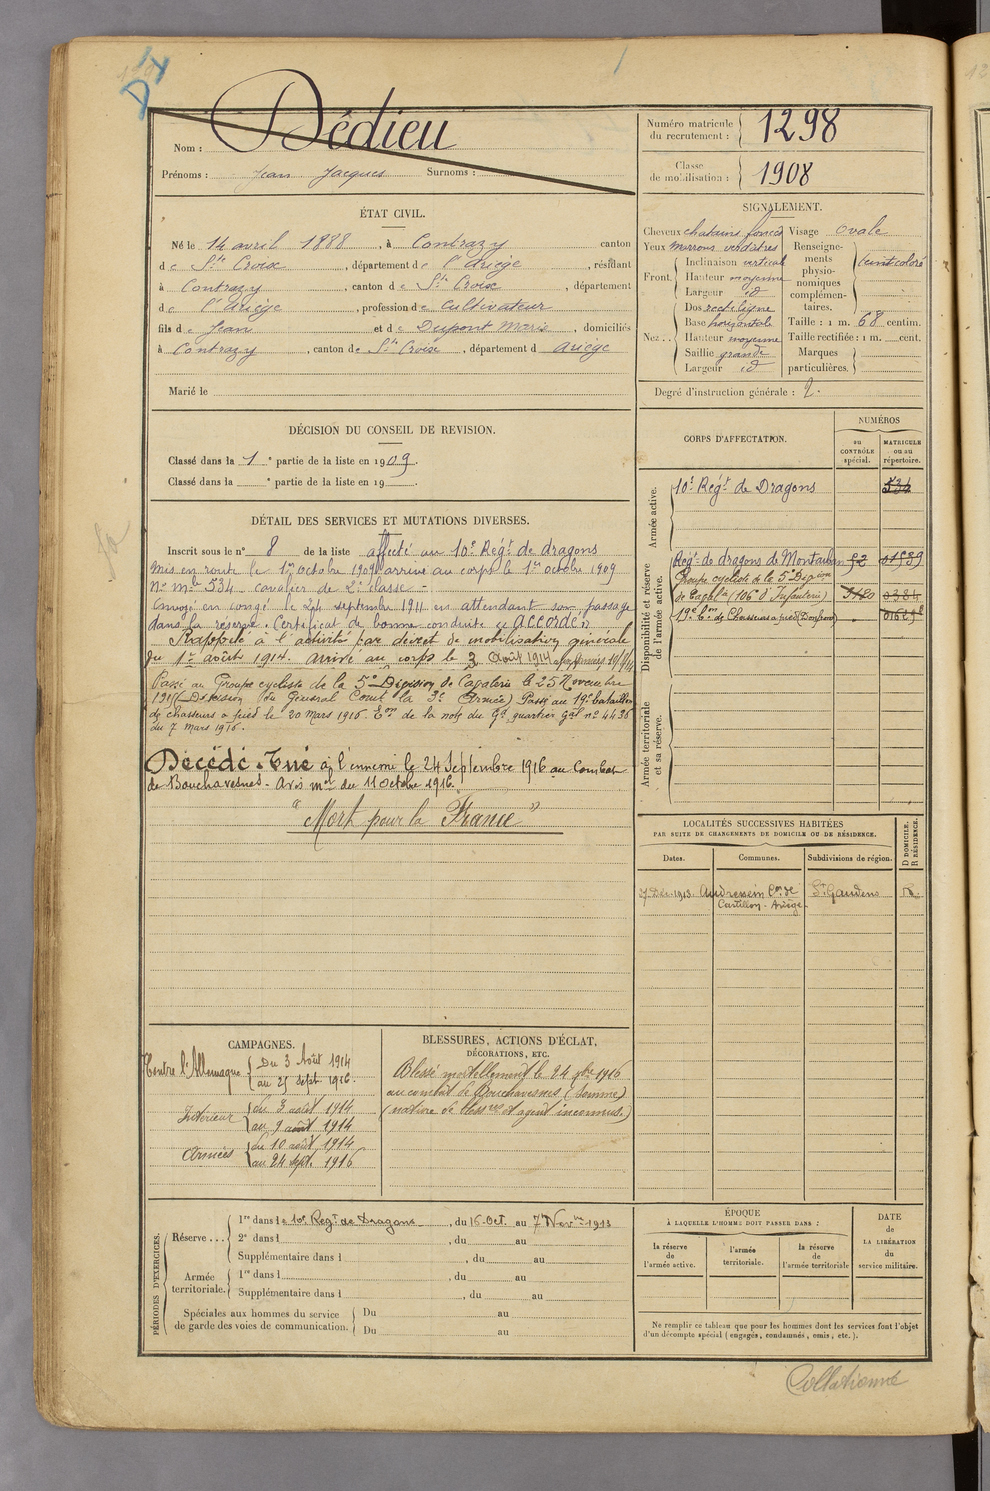 Dédieu
Nom :
Prénoms : Jean Jacques Surnoms :
Numéro matricule du recrutement : 1298
Classe de mobilisation : 1908
ÉTAT CIVIL.
Né le 14 avril 1888, à Contrazy canton
de Ste Croix, département de l'Ariège, résidant
à Contrazy, canton de Ste Croix, département
de l'Ariège, profession de Cultivateur
fils de Jean et de Dupont Marie, domiciliés
à Contrazy, canton de Ste Croix, département d Ariège
Marié le
SIGNALEMENT.
Cheveux chatains foncés Visage Ovale
Yeux marrons verdâtres
Front. Inclinaison vertical
Hauteur moyenne
Largeur id
Nez... Dos rectiligne
Base horizontale
Hauteur moyenne
Saillie grande
Largeur id
Renseignements physionomiques complémentaires. teint coloré
Taille : 1 m. 68 centim.
Taille rectifiée : 1 m. cent.
Marques particulières.
Degré d'instruction générale : 2.
DÉCISION DU CONSEIL DE REVISION.
Classé dans la 1e partie de la liste en 1909.
Classé dans la e partie de la liste en 19
DÉTAIL DES SERVICES ET MUTATIONS DIVERSES.
Inscrit sous le n° 8 de la liste affecté au 10e Régt de dragons
Mis en route le 1er octobre 1909 arrivé au corps le 1er octobre 1909
No mle 534 cavalier de 2e classe -
Envoyé en congé le 24 septembre 1911 en attendant son passage
dans la réserve. Certificat de bonne conduite "accordé"
Rappelé à l'activité par décret de mobilisation générale
du 1er août 1914. arrivé au corps le 3 Août 1914
Passé au Groupe cycliste de la 5e Division de Cavalerie le 25 Novembre
(Division du Général Comt la 3e Armée) Passé au 19e bataillon
de chasseurs à pied le 20 mars 1916 Eon de la note du Gd quartier Gal no 4436
du 7 mars 1916.
Décédé - Tué à l'ennemi le 24 Septembre 1916 au Combat
de Bouchavesnes. Avis mel du 11 octobre 1916.
"Mort pour la France"
CORPS D'AFFECTATION.
NUMÉROS
au CONTRÔLE spécial.
MATRICULE ou au répertoire.
Armée active.
10e Régt de Dragons 534
Disponibilité et réserve de l'armée active.
Regt de dragons de Montauban
Groupe cycliste de la 5e Divon
de Cavalie (106e d'Infanterie)
19e Bon de Chasseurs à pied
Armée territoriale et sa réserve.
LOCALITÉS SUCCESSIVES HABITÉES
PAR SUITE DE CHANGEMENTS DE DOMICILE OU DE RÉSIDENCE.
D DOMICILE. R RÉSIDENCE.
Dates. Communes. Subdivisions de région.
27 Déc. 1913. Audressein Con de St Gaudens R.
Castillon - Ariège
CAMPAGNES.
Contre l'Allemagne { Du 3 Août 1914
au 25 Sept 1916.
Intérieur { du 3 août 1914
au 9 août 1914
Armées { du 10 août 1914
au 24 sept. 1916
BLESSURES, ACTIONS D'ÉCLAT,
DÉCORATIONS, ETC.
Blessé mortellement le 24 7bre 1916
au combat de Bouchavesnes (Somme)
(nature de blessure et agent inconnus.)
PÉRIODES D'EXERCICES.
Réserve... 1re dans le 10e Régt de Dragons, du 16 Oct. au 7 Novre 1913
2e dans l , du au
Supplémentaire dans l , du au
Armée territoriale. 1re dans l , du au
Supplémentaire dans l , du au
Spéciales aux hommes du service
de garde des voies de communication. Du au
Du au
ÉPOQUE
À LAQUELLE L'HOMME DOIT PASSER DANS :
la réserve de l'armée active.
l'armée territoriale.
la réserve de l'armée territoriale
DATE DE LA LIBÉRATION du service militaire.
Ne remplir ce tableau que pour les hommes dont les services font l'objet
d'un décompte spécial (engagés, condamnés, omis, etc.).
Collationné